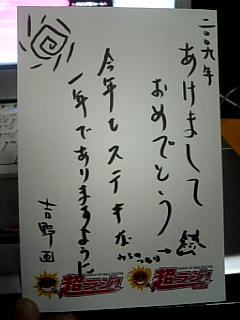 二〇〇九年
あけまして
おめでとう
うしのつもり→
今年もステキな
一年でありますように
吉野画
超ラジ!
超ラジ!